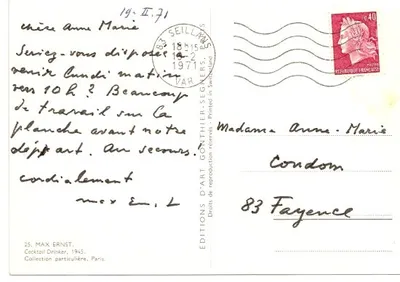 19-II.71
chère Anne Marie
Seriez-vous disposée
venir lundi matin
vers 10h ? Beaucoup
de travail sur la
planche avant notre
départ. Au secours!
cordialement
max
25. MAX ERNST.
Cocktail Drinker, 1945.
Collection particulière, Paris.
EDITIONS D'ART GONTHIER-SEGHERS,
Droits de reproduction
83 SEILLANS
18H15
1971
VAR
0,40
REPUBLIQUE FRANÇAISE
Madame Anne-Marie
Condom
83 Fayence